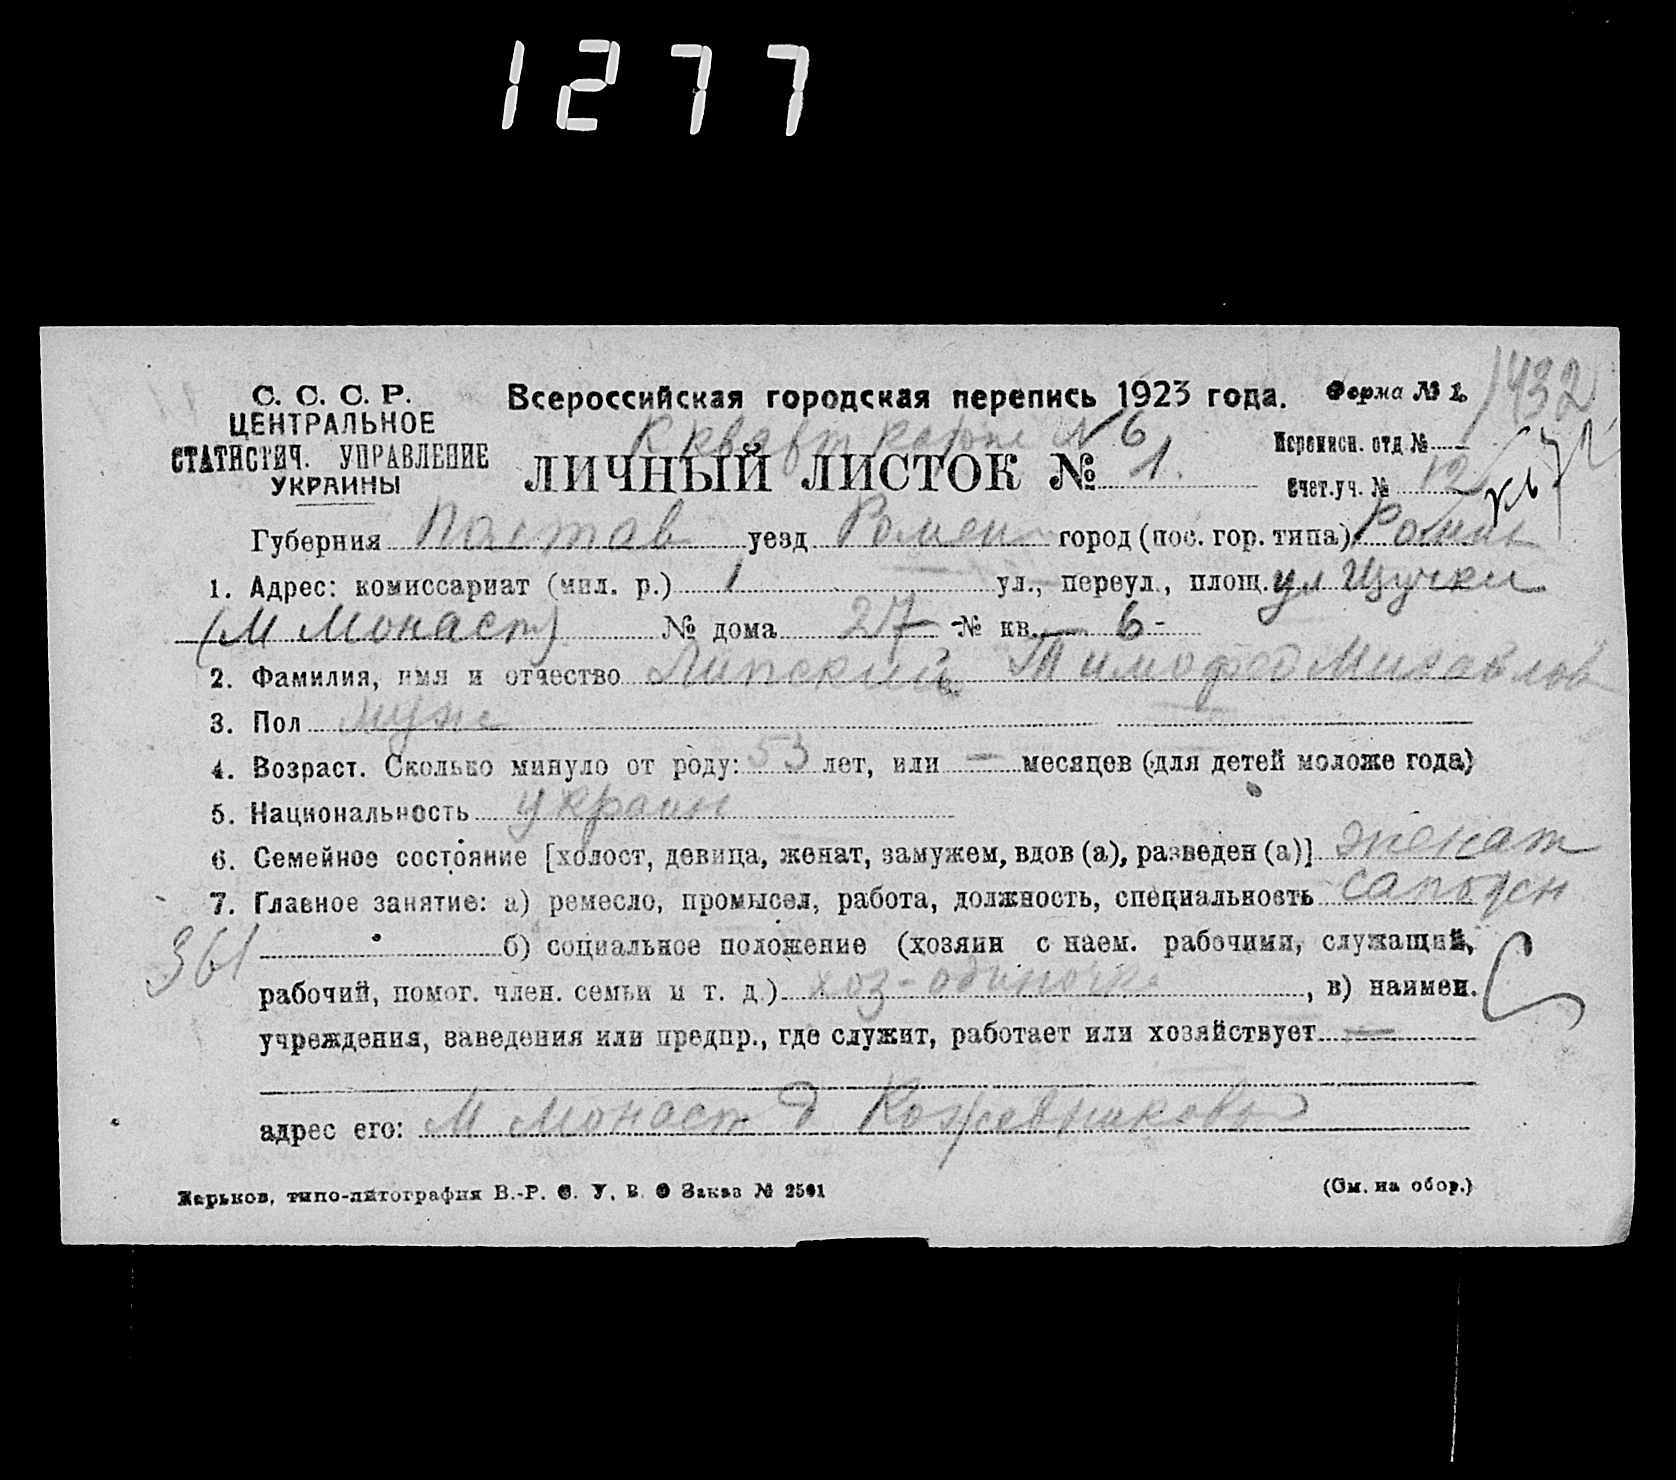 1277
С. С. С. Р. Всероссийская городская перепись 1923 года. Форма № 1. 1432
ЦЕНТРАЛЬНОЕ
СТАТИСТИЧ. УПРАВЛЕНИЕ
УКРАИНЫ
К кварт карте № 6
ЛИЧНЫЙ ЛИСТОК № 1.
Переписн. отд №
Счет.уч. № 12
Губерния Полтав уезд Ромен город (пос. гор. типа) Ромны
1. Адрес: комиссариат (мил. р.) 1 ул., переул., площ. ул Щучки
(М Монаст) № дома 27 № кв. 6 -
2. Фамилия, имя и отчество Липский Тимофей Михайлов
3. Пол муж
4. Возраст. Сколько минуло от роду: 53 лет, или — месяцев (для детей моложе года)
5. Национальность украин
6. Семейное состояние [холост, девица, женат, замужем, вдов (а), разведен (а)] женат
7. Главное занятие: а) ремесло, промысел, работа, должность, специальность сапожн
361 б) социальное положение (хозяин с наем. рабочими, служащий,
рабочий, помог. член. семьи и т. д.) хоз-одиночка, в) наимен.
учреждения, заведения или предпр., где служит, работает или хозяйствует —
адрес его: М Монаст д Кожевникова
Харьков, типо-литография В.-Р. С. У. В. О Заказ № 2501 (См. на обор.)